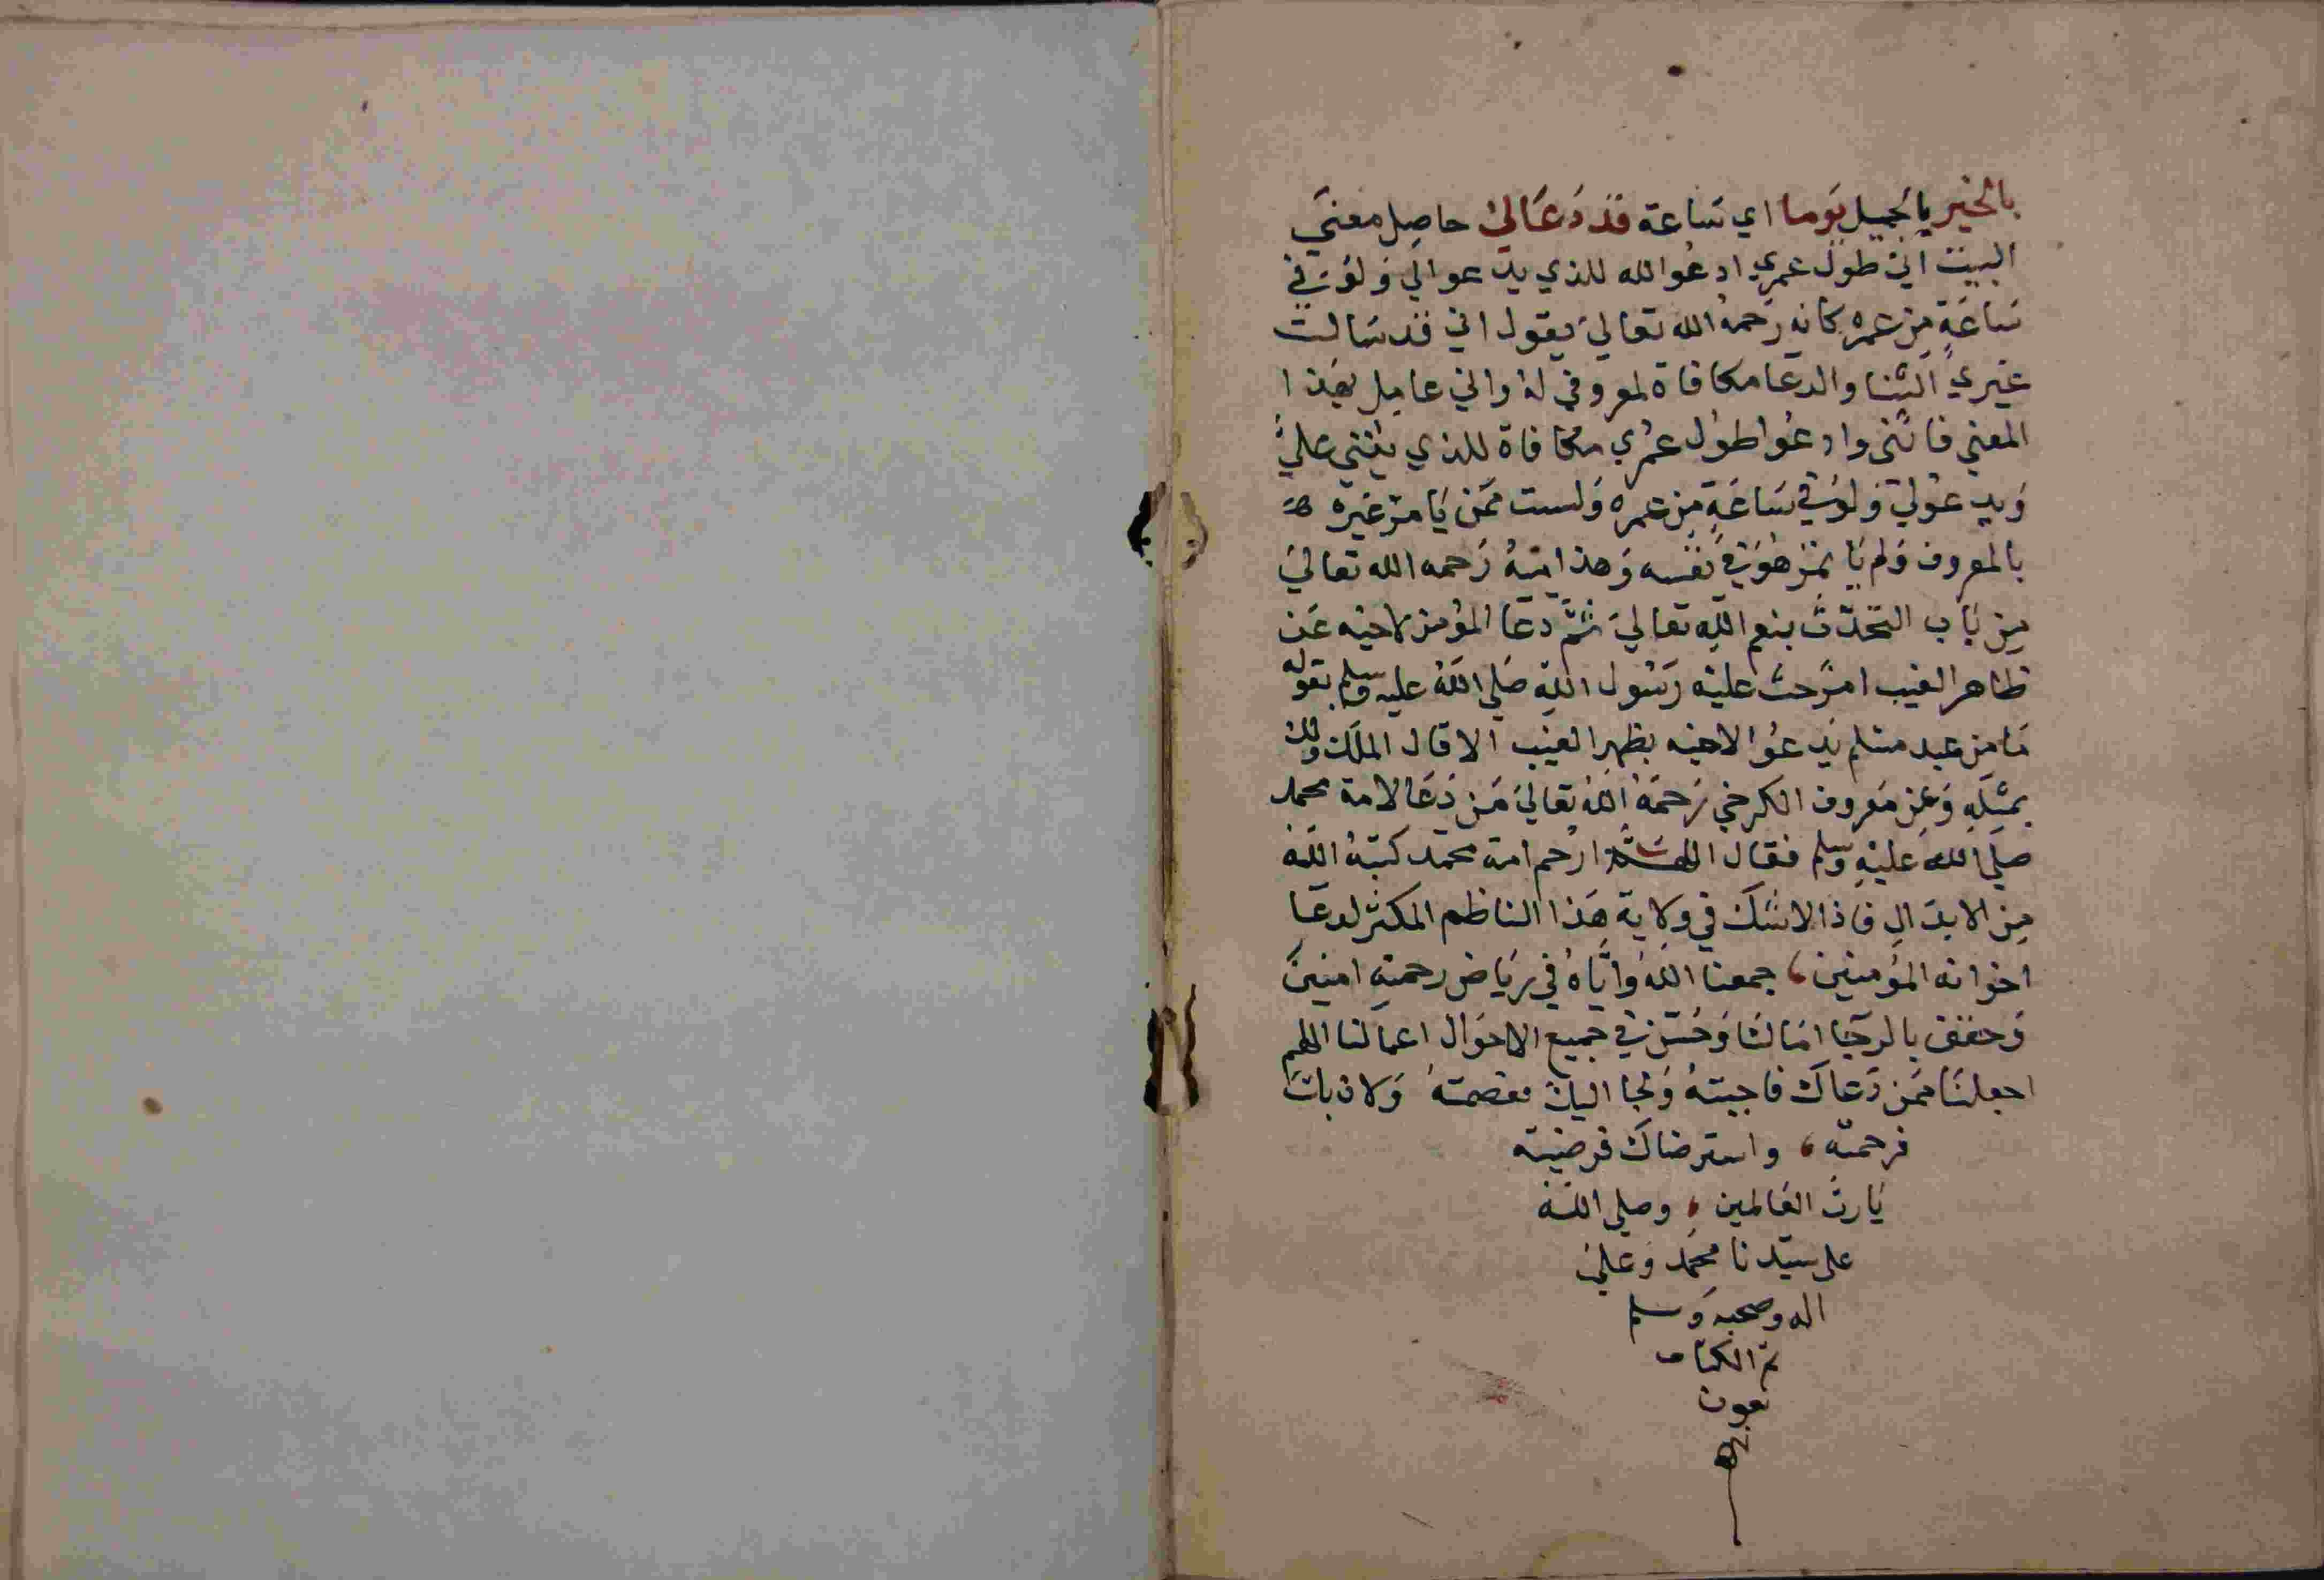 بالخير بالجميل يوما اي ساعة قد دعا لي حاصل معنى
البيت اني طول عمري ادعوا لله للذي يدعوا لي ولو في
ساعة من عمره كانه رحمه الله تعالى يقول اني قد سالت
غيري الثنا والدعا مكافاة لمعروفي له واني عامل بهذا
المعني فاثني وادعوا طول عمري مكافاة للذي يثني علي
ويدعولي ولو في ساعة من عمره ولست ممن يامر غيره
بالمعروف ولم ياتمر هو في نفسه وهذا منه رحمه الله تعالى
من باب التحدث بنعم الله تعالى ثم دعا المؤمن لاخيه عن
ظاهر الغيب امر حث عليه رسول الله صلى الله عليه وسلم بقوله
ما من عبد مسلم يدعوا لاخيه بظهر الغيب الا قال الملك ولك
بمثله وعن معروف الكرخي رحمه الله تعالى من دعا لامة محمد
صلى الله عليه وسلم فقال اللهم ارحم امة محمد كتبه الله
من الابدال فاذا لا شك في ولاية هذا الناظم المكثر لدعا
اخوانه المؤمنين، جمعنا الله واياه في رياض رحمته امنين
وحقق بالرجا امالنا وحسن في جميع الاحوال اعمالنا اللهم
اجعلنا ممن دعاك فاجبته ولجا اليك فعصمته ولاذ بك
فرحمته، واسترضاك فرضيته
يارب العالمين، وصلى الله
على سيدنا محمد وعلى
اله وصحبه وسلم
تم الكتاب
بعون